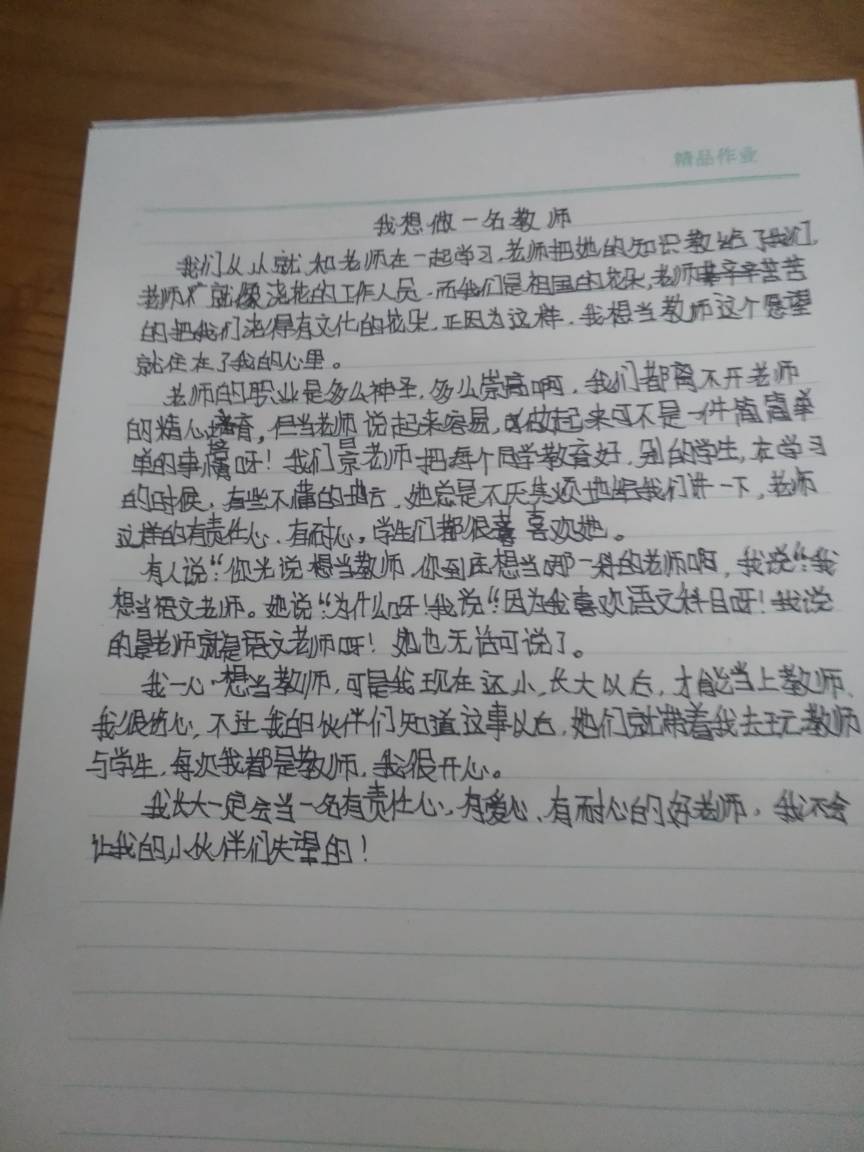 精品作业
我想做一名教师
我们从小就和老师在一起学习,老师把她的知识教给了我们,
老师就像浇花的工作人员,而我们是祖国的花朵,老师辛辛苦苦
的把我们浇得有文化的花朵,正因为这样,我想当教师这个愿望
就住在了我的心里。
老师的职业是多么神圣,多么崇高啊,我们都离不开老师
的精心培育,但当老师说起来容易,做起来可不是一件简简单
单的事情呀!我们景老师把每个同学教育好,别的学生,在学习
的时候,有些不懂的地方,她总是不厌其烦地给我们讲一下,老师
这样的有责任心,有耐心,学生们都很喜欢她。
有人说:“你光说想当教师,你到底想当哪一科的老师啊,我说“我
想当语文老师。她说“为什么呀!我说“因为我喜欢语文科目呀!我说
的景老师就是语文老师呀!她也无话可说了。
我一心想当教师,可是我现在还小,长大以后,才能当上教师,
我很伤心,不过我的伙伴们知道这事以后,她们就带着我去玩教师
与学生,每次我都是教师,我很开心。
我长大一定会当一名有责任心,有爱心、有耐心的好老师,我不会
让我的小伙伴们失望的!